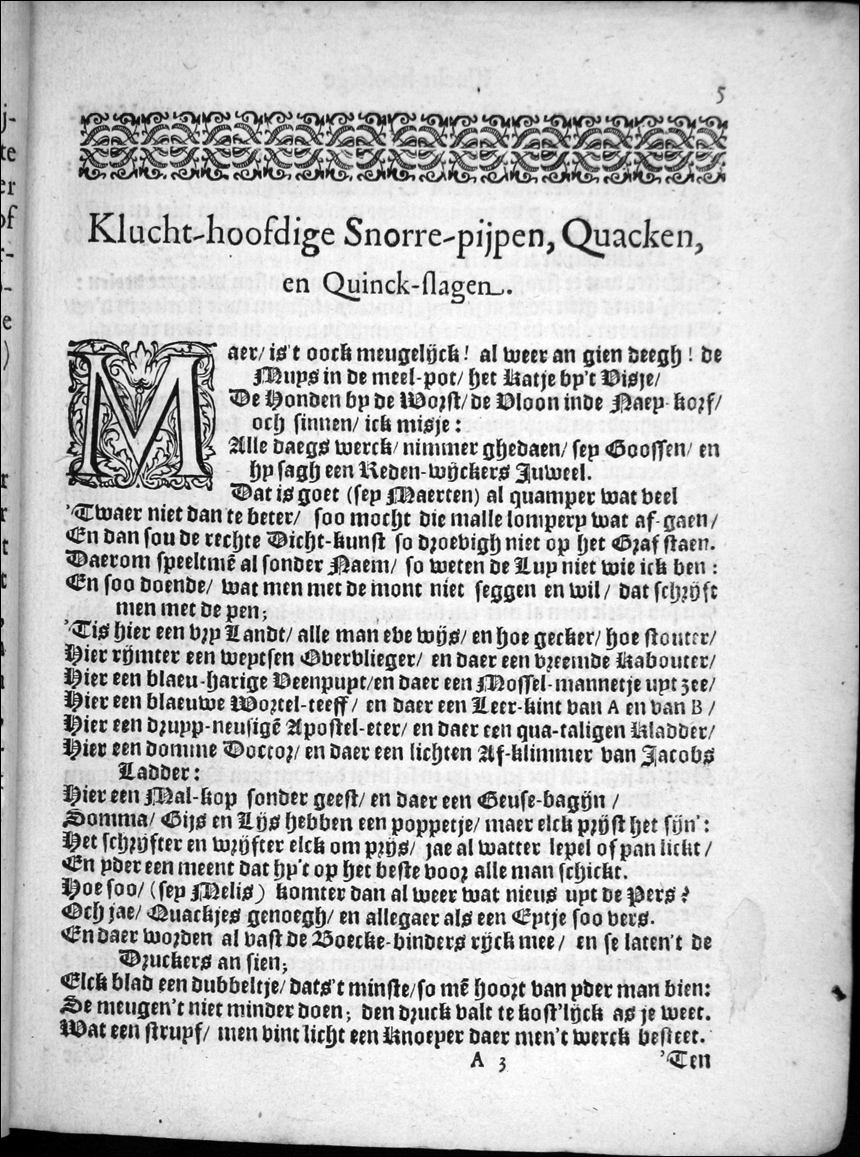 5
Klucht-hoofdige Snorre-pijpen, Quacken,
en Quinck-slagen.
MAer/ is't oock meugelijck! al weer an gien deegh! de
Muys in de meel-pot/ het Katje by't Visje/
De Honden by de Worst/ de Vloon inde Naey-korf/
och sinnen/ ick misje:
Alle daegs werck/ nimmer ghedaen/ sey Goossen/ en
hy sagh een Reden-wijckers Juweel.
Dat is goet (sey Maerten) al quamper wat veel
'Twaer niet dan te beter/ soo mocht die malle lompery wat af-gaen/
En dan sou de rechte Dicht-kunst so droevigh niet op het Graf staen.
Daerom speeltmē al sonder Naem/ so weten de Luy niet wie ick ben:
En soo doende/ wat men met de mont niet seggen en wil/ dat schrijft
men met de pen;
'Tis hier een vry Landt/ alle man eve wijs/ en hoe gecker/ hoe stouter/
Hier rijmter een weytsen Overvlieger/ en daer een vreemde Kabouter/
Hier een blaeu-harige Veenpuyt/en daer een Mossel-mannetje uyt zee/
Hier een blaeuwe Wortel-teeff/ en daer een Leer-kint van A en van B/
Hier een druyp-neusigē Apostel-eter/ en daer een qua-taligen Kladder/
Hier een domme Doctor/ en daer een lichten Af-klimmer van Jacobs
Ladder:
Hier een Mal-kop sonder geest/ en daer een Geuse-bagijn/
Somma/ Gijs en Lijs hebben een poppetje/ maer elck prijst het sijn':
Het schrijfter en wrijfter elck om prijs/ jae al watter lepel of pan lickt/
En yder een meent dat hy't op het beste voor alle man schickt.
Hoe soo/ (sey Melis) komter dan al weer wat nieus uyt de Pers?
Och jae/ Quackjes genoegh/ en allegaer als een Eytje soo vers.
En daer worden al vast de Boecke-binders rijck mee/ en se laten't de
Druckers an sien;
Elck blad een dubbeltje/ dats't minste/so mē hoort van yder man bien:
Se meugen't niet minder doen; den druck valt te kost'lijck as je weet.
Wat een struyf/ men vint licht een Knoeper daer men't werck besteet.
A 3
'Ten